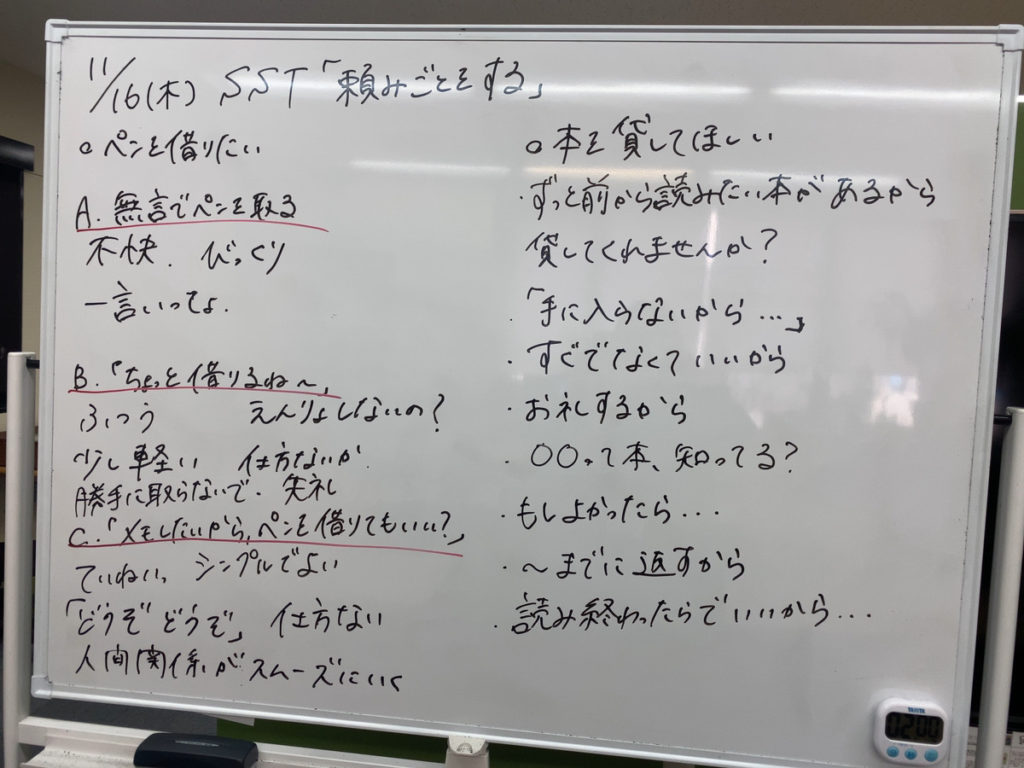 11/16(木) SST「頼みごとをする」
○ペンを借りたい
A. 無言でペンを取る
不快. びっくり
一言いってよ.
B.「ちょっと借りるね～」
ふつう えんりょしないの?
少し軽い 仕方ないか
勝手に取らないで. 失礼
C.「メモしたいから,ペンを借りてもいい?」
ていねい。 シンプルでよい
「どうぞどうぞ」 仕方ない
人間関係がスムーズにいく
○本を貸してほしい
・ずっと前から読みたい本があるから
貸してくれませんか?
・「手に入らないから...」
・すぐでなくていいから
・お礼するから
・○○って本、知ってる?
・もしよかったら...
・～までに返すから
・読み終わったらでいいから...
TANITA
0200